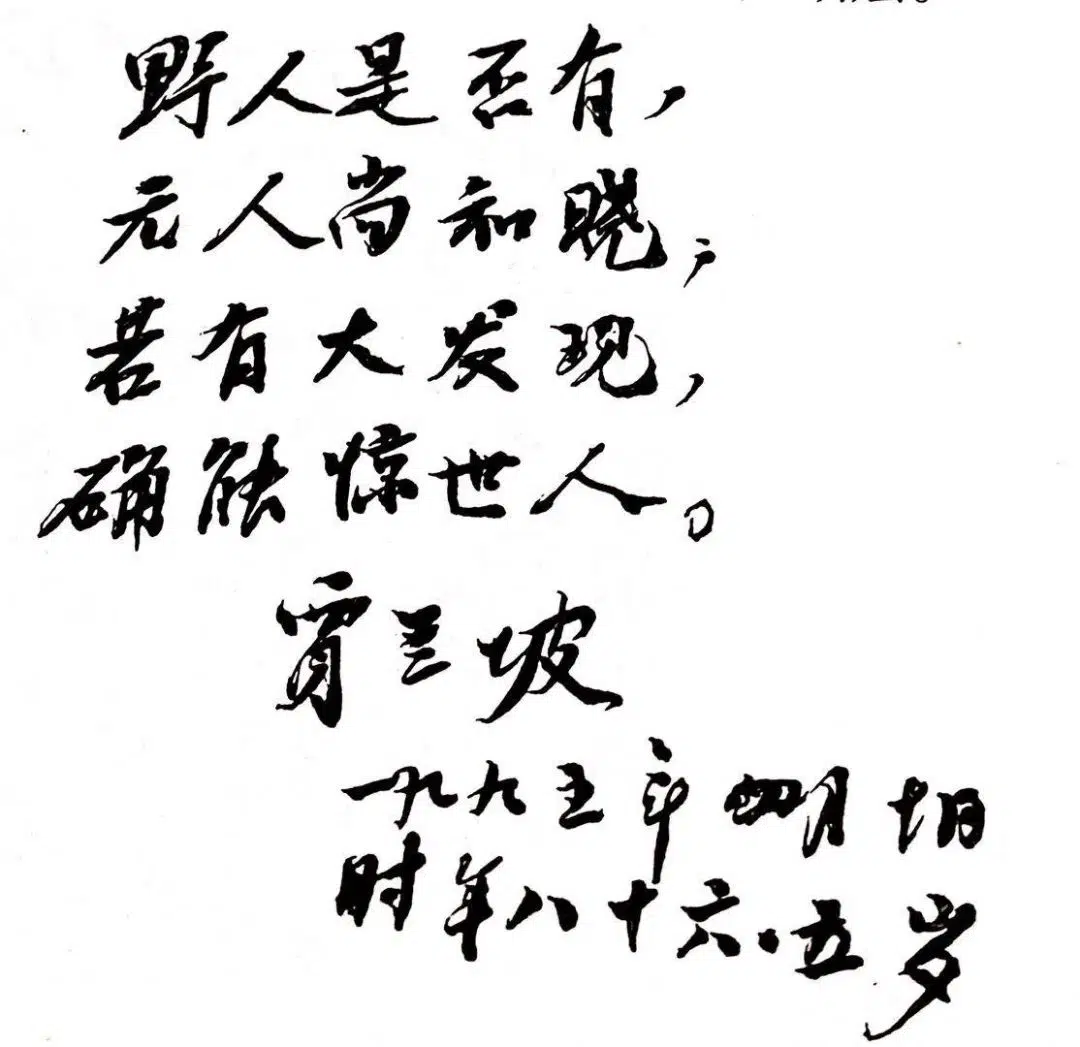 野人是否有，
无人尚知晓，
若有大发现，
确能惊世人。
贾兰坡
一九九五年四月七日
时年八十六·五岁